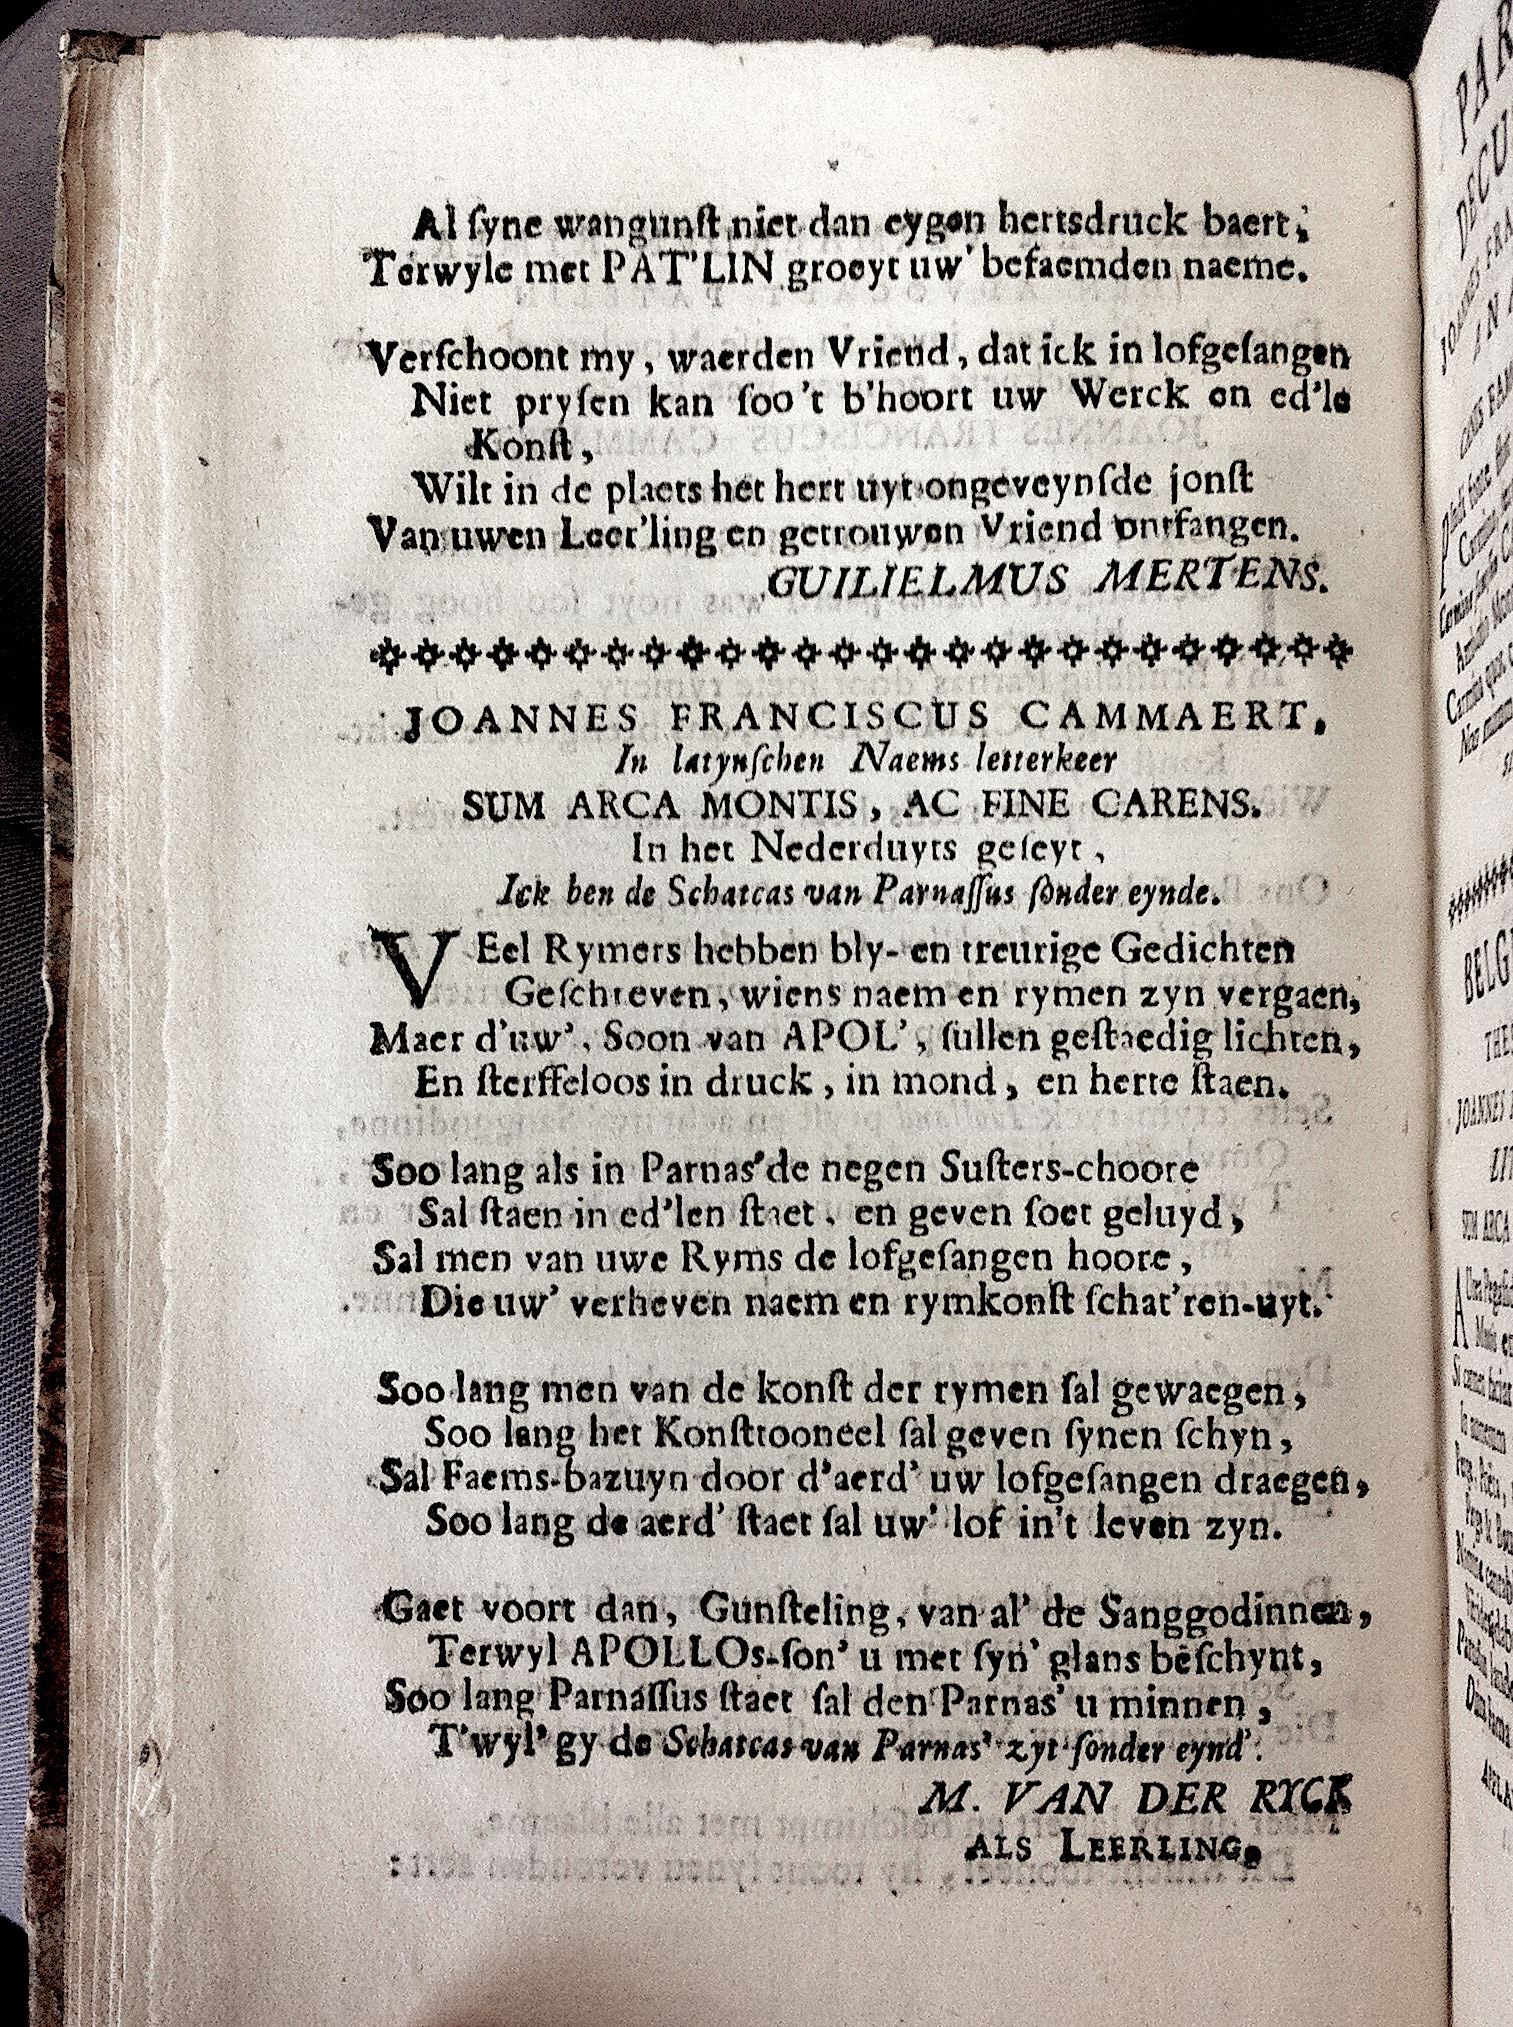 Al ſyne wangunſt niet dan eygen hertsdruck baert;
Terwyle met PAT'LIN groeyt uw' befaemden naeme.
Verſchoont my, waerden Vriend, dat ick in lofgeſangen
Niet pryſen kan ſoo 't b'hoort uw Werck en ed'le
Konſt,
Wilt in de plaets het hert uyt ongeveynſde jonſt
Van uwen Leer'ling en getrouwen Vriend ontfangen.
GUILIELMUS MERTENS.
JOANNES FRANCISCUS CAMMAERT.
In latynſchen Naems letterkeer
SUM ARCA MONTIS, AC FINE CARENS.
In het Nederduyts geſeyt,
Ick ben de Schatcas van Parnaſſus ſonder eynde.
VEel Rymers hebben bly- en treurige Gedichten
Geſchreven, wiens naem en rymen zyn vergaen,
Maer d'uw', Soon van APOL', ſullen geſtaedig lichten,
En ſterffeloos in druck, in mond, en herte ſtaen.
Soo lang als in Parnas' de negen Suſters-choore
Sal ſtaen in ed'len ſtaet, en geven ſoet geluyd,
Sal men van uwe Ryms de lofgeſangen hoore,
Die uw' verheven naem en rymkonſt ſchat'ren-uyt.
Soo lang men van de konſt der rymen ſal gewaegen,
Soo lang het Konſttooneel ſal geven ſynen ſchyn,
Sal Faems-bazuyn door d'aerd' uw lofgeſangen draegen,
Soo lang de aerd' ſtaet ſal uw' lof in't leven zyn.
Gaet voort dan, Gunſteling, van al' de Sanggodinnen,
Terwyl APOLLOs-ſon' u met ſyn' glans beſchynt,
Soo lang Parnaſſus ſtaet ſal den Parnas' u minnen,
T'wyl' gy de Schatcas van Parnas' zyt ſonder eynd'.
M. VAN DER RYCK
ALS LEERLING.